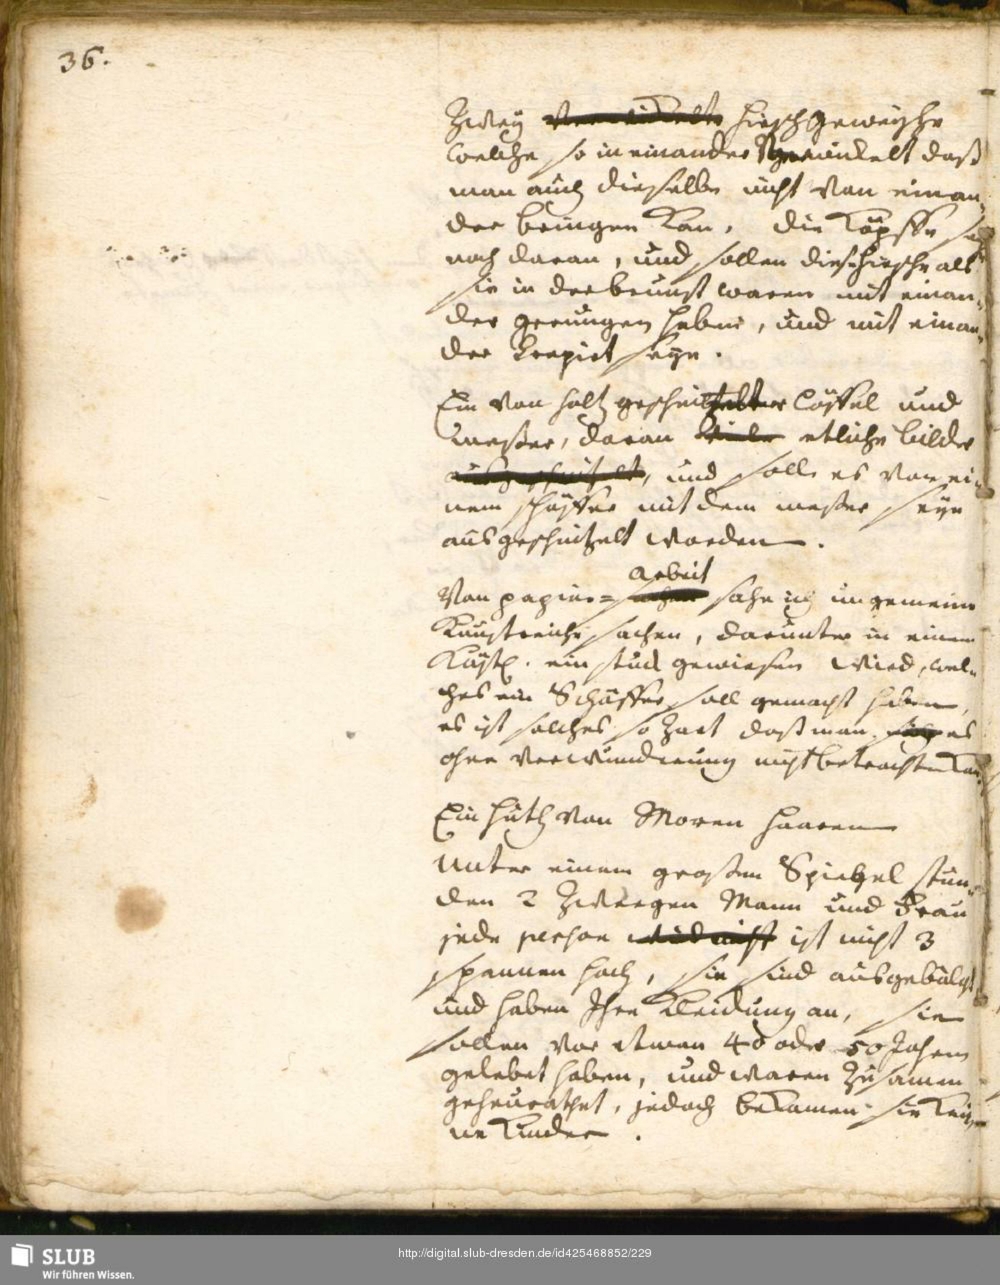 36.
Zweÿ hirschgeweyhe
welche so in einander gewickelt daß
man auch dieselbe nicht von einan-
der bringen kan, die Köpffe
noch daran, und sollen diese hirsche als
sie in der brunst waren mit einan-
der gerungen haben, und mit einan-
der Crepiet seyn.
Ein von holtz geschnitzter Löffel und
meßer, daran etliche bilder
, und solle es von ei-
nem schäffer mit dem meßer seyn
ausgeschnitzelt worden.
arbeit
Von papier= sahe ich ungemeine
Kunstreiche sachen, darunter in einem
Kästl. ein stuck gewiesen wird, wel-
ches ein Schäffer soll gemacht haben,
es ist solches so zart daß man es
ohne verwunderung nicht betrachten kan.
Ein huth von Moren haaren
Unter einem großen Spiegel stun-
den 2 Zwergen Mann und Frau
jede person ist nicht 3
spannen hoch, sie sind ausgebälgt
und haben Ihre Kleidung an, sie
sollen vor etwan 40 oder 50 Jahren
gelebet haben, und waren zusamen
geheurathet, jedoch bekamen sie kei-
ne Kinder.
SLUB
Wir führen Wissen.
http://digital.slub-dresden.de/id425468852/229